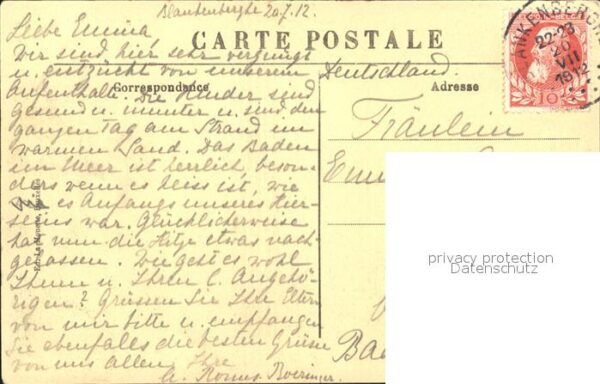 Blankenberghe 20.7.12.
Liebe Emma
CARTE POSTALE
Wir sind hier sehr vergnügt
u. entzückt von unserem
Deutschland.
Aufenthalt. Die Kinder sind
Correspondance
Adresse
gesund u. munter u. sind den
ganzen Tag am Strand im
Fräulein
warmen Sand. Das Baden
im Meer ist herrlich, beson-
ders wenn es heiss ist, wie
es Anfangs unseres Hier-
seins war. Glücklicherweise
hat nun die Hitze etwas nach-
gelassen. Wie geht es wohl
Ihnen u. Ihren l. Angehö-
rigen? Grüssen Sie Ihre Eltern
von mir bitte u. empfangen
Sie ebenfalls die besten Grüsse
von uns allen Ihre
BLANKENBERGHE
22-23
20
VII
1912
10
privacy protection
Datenschutz